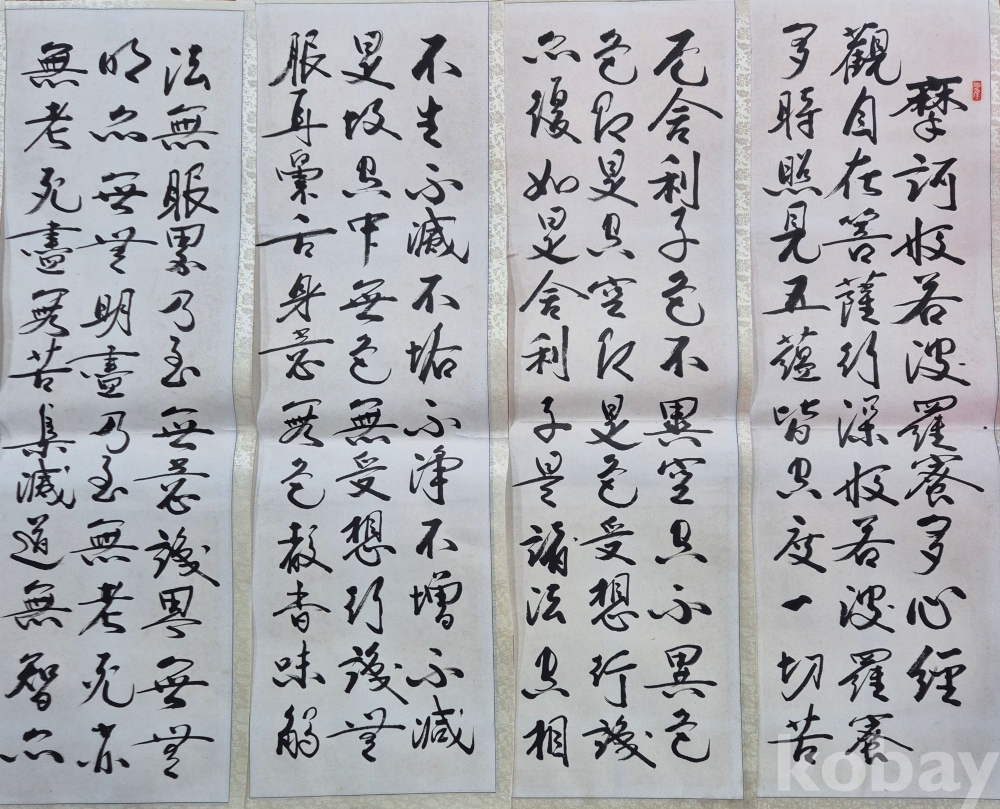 摩訶般若波羅蜜多心經
觀自在菩薩行深般若波羅蜜
多時照見五蘊皆空度一切苦
厄舍利子色不異空空不異色
色即是空空即是色受想行識
亦復如是舍利子是諸法空相
不生不滅不垢不淨不增不減
是故空中無色無受想行識無
眼耳鼻舌身意無色聲香味觸
法無眼界乃至無意識界無無
明亦無無明盡乃至無老死亦
無老死盡無苦集滅道無智亦
kobay